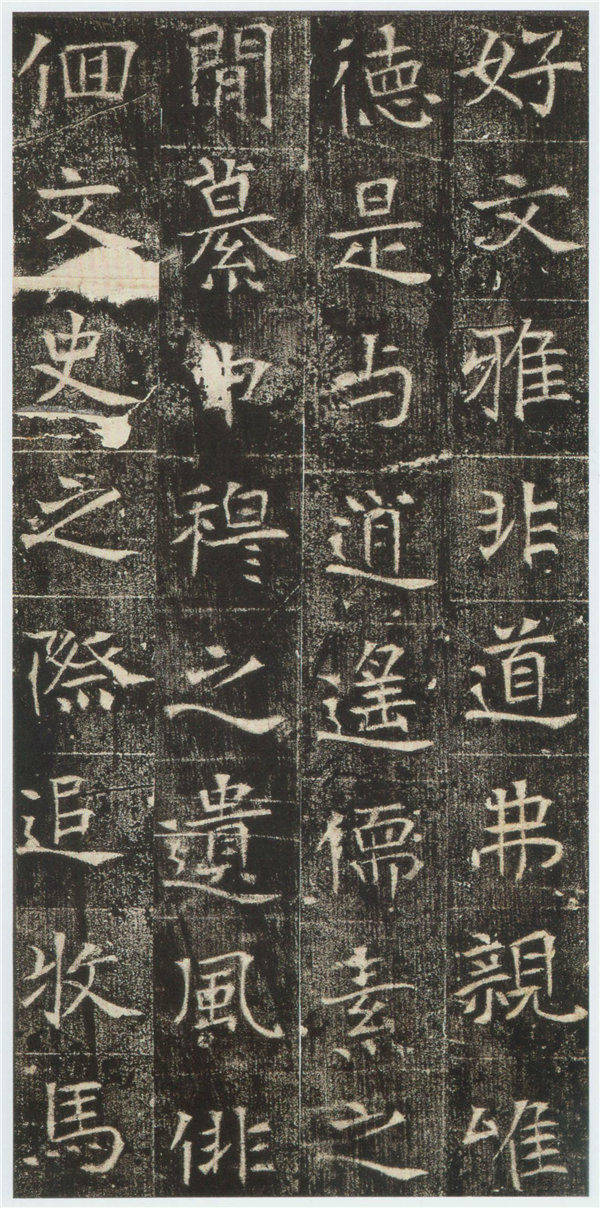 好文雅非道弗親唯
德是与逍遥儒素之
閒纂申穆之遺風俳
佪文史之際追收馬